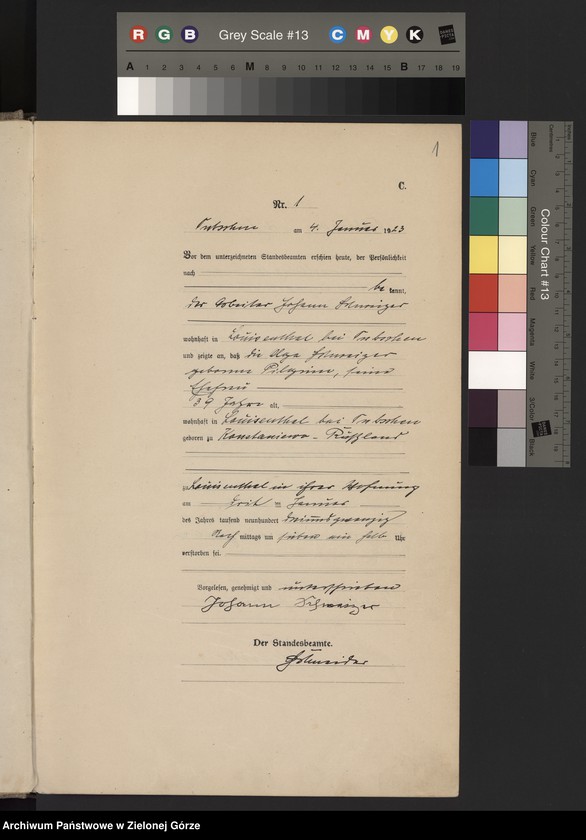 R G B Grey Scale #13 C M Y K
A 1 2 3 4 5 6 M 8 9 10 11 12 13 14 15 B 17 18 19
1
C.
Nr. 1
am 4. Januar 1923
Vor dem unterzeichneten Standesbeamten erschien heute, der Persönlichkeit
nach
be kannt,
der Arbeiter Johann Schweizer
wohnhaft in Louisenthal bei
und zeigte an, daß die Olga Schweizer
geborene Pilgrim, seine
Ehefrau
39 Jahre alt,
wohnhaft in Louisenthal bei
geboren zu Konstantinowo - Rußland
zu Louisenthal in ihrer Wohnung
am Januar
des Jahres tausend neunhundert dreiundzwanzig
Nach mittags um sieben ein halb Uhr
verstorben sei.
Vorgelesen, genehmigt und unterschrieben
Johann Schweizer
Der Standesbeamte.
Schneider
Colour Chart #13
Blue
Cyan
Green
Yellow
Red
Magenta
White
3/Color
Black
Centimetres
Archiwum Państwowe w Zielonej Górze